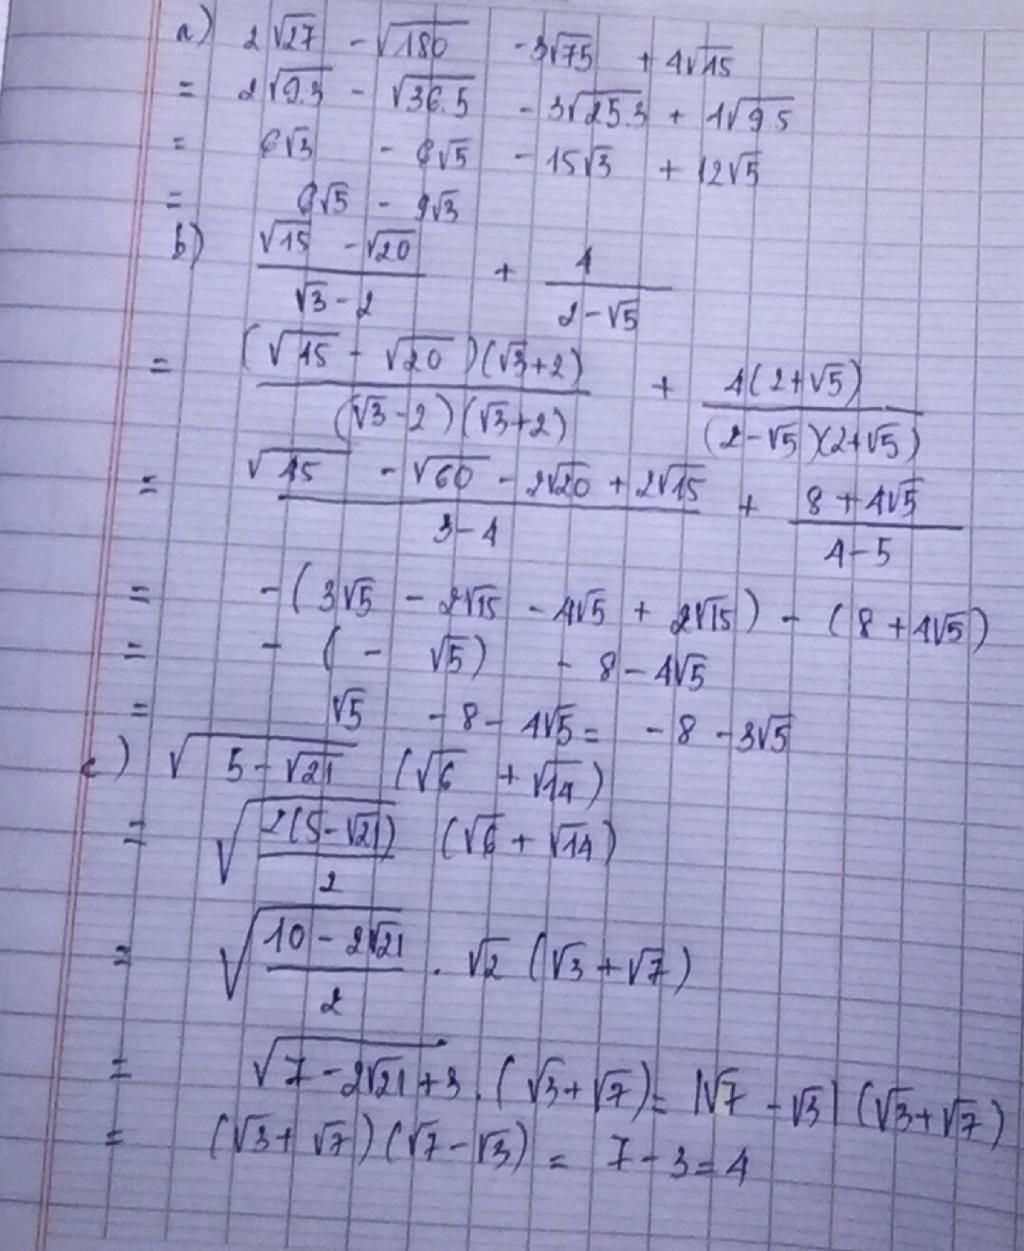 a) 2√27 - √180 - 3√75 + 4√45
= 2√9.3 - √36.5 - 3√25.3 + 4√9.5
= 6√3 - 6√5 - 15√3 + 12√5
= 6√5 - 9√3
b) (√15 - √20)/(√3 - 2) + 4/(2 - √5)
= (√15 - √20)(√3+2)/((√3-2)(√3+2)) + 4(2+√5)/((2-√5)(2+√5))
= (√45 - √60 - 2√20 + 2√15)/(3-4) + (8 + 4√5)/(4-5)
= -(3√5 - 2√15 - 4√5 + 2√15) - (8 + 4√5)
= - ( - √5) - 8 - 4√5
= √5 - 8 - 4√5 = - 8 - 3√5
c) √(5-√21) (√6 + √14)
= √(2(5-√21)/2) (√6 + √14)
= √((10 - 2√21)/2) . √2 (√3 + √7)
= √(7 - 2√21 + 3) . (√3+√7) = |√7 - √3| (√3+√7)
= (√3+ √7)(√7-√3) = 7-3=4